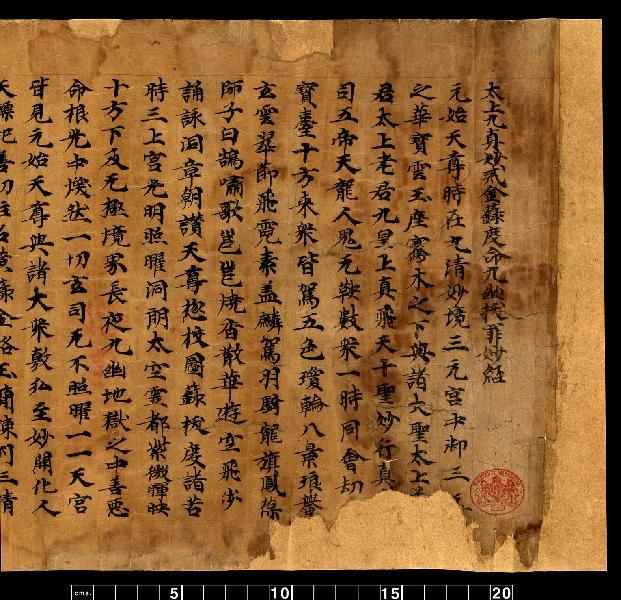 太上九真妙戒金籙度命九幽拔罪妙經
元始天尊時在九清妙境三元宮中
之華寶雲玉座騫木之下與諸大聖太上
君太上老君九皇上真飛天千聖妙行真
司五帝天龍人鬼无鞅數衆一時同會
寶臺十方來衆皆駕五色瓊輪八景琅輿
玄雲翠節飛霓素盖麟駕羽騎龍旗鳳葆
師子白鵠嘯歌邕邕燒香散華遊空飛步
誦詠洞章朝讃天尊揔校圖籙拔度諸苦
時三上宮光明照曜洞朗太空雲都紫微輝映
十方下及无極境界長夜九幽地獄之中善惡
命根光中煥然一切玄司无不照曜一一天宮
皆見元始天尊與諸大衆敷弘至妙開化人
cms. 5 10 15 20